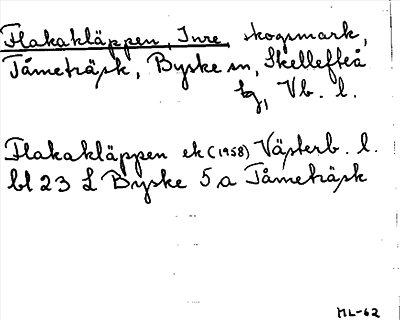 Flakakläppen, Inre, skogsmark,
Tåmeträsk, Byske sn, Skellefteå
tg, Vb. l.
Flakakläppen ek (1958) Västerb. l.
bl 23 L Byske 5 a Tåmeträsk
ML-62